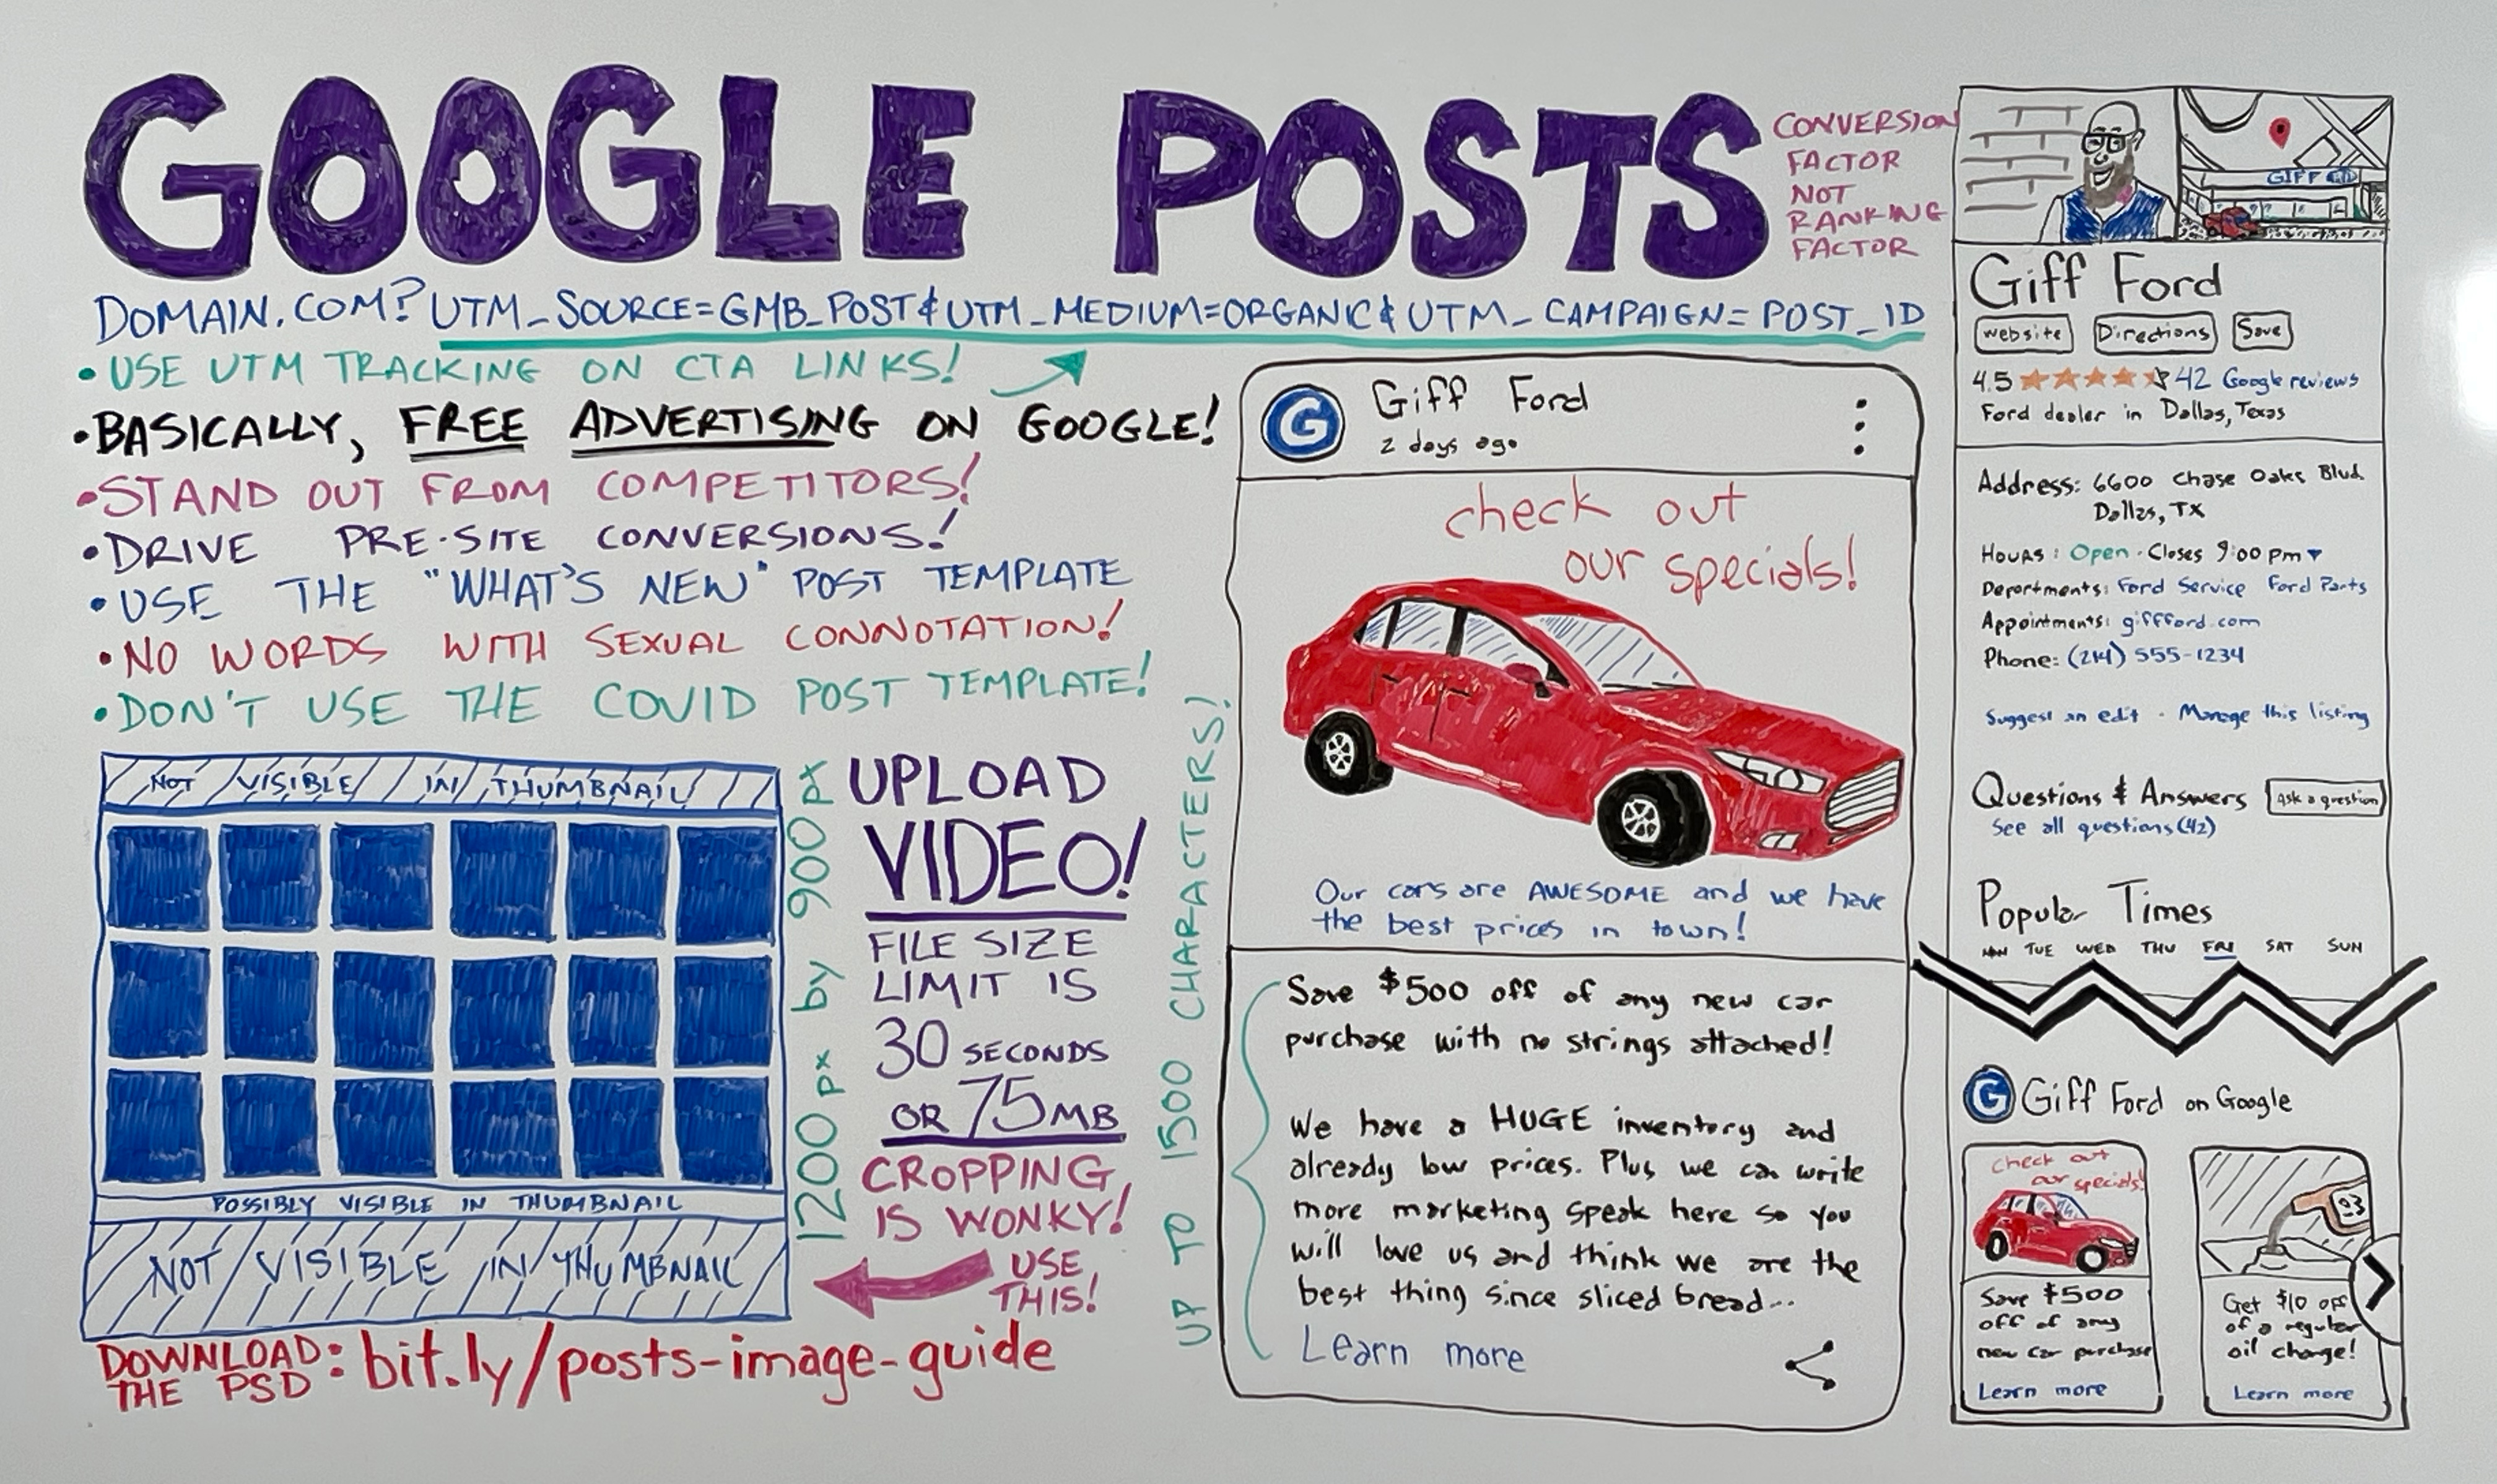 GOOGLE POSTS
CONVERSION
FACTOR
NOT
RANKING
FACTOR
DOMAIN.COM?UTM_SOURCE=GMB_POST&UTM_MEDIUM=ORGANIC&UTM_CAMPAIGN=POST_ID
•USE UTM TRACKING ON CTA LINKS!
•BASICALLY, FREE ADVERTISING ON GOOGLE!
•STAND OUT FROM COMPETITORS!
•DRIVE PRE-SITE CONVERSIONS!
•USE THE "WHAT'S NEW" POST TEMPLATE
•NO WORDS WITH SEXUAL CONNOTATION!
•DON'T USE THE COVID POST TEMPLATE!
NOT VISIBLE IN THUMBNAIL
POSSIBLY VISIBLE IN THUMBNAIL
NOT VISIBLE IN THUMBNAIL
1200 px by 900 px
DOWNLOAD
THE PSD: bit.ly/posts-image-guide
UPLOAD
VIDEO!
FILE SIZE
LIMIT IS
30 SECONDS
OR 75MB
CROPPING
IS WONKY!
USE
THIS!
UP TO 1500 CHARACTERS!
G
Giff Ford
2 days ago
check out
our specials!
Our cars are AWESOME and we have
the best prices in town!
Save $500 off of any new car
purchase with no strings attached!
We have a HUGE inventory and
already low prices. Plus we can write
more marketing speak here so you
will love us and think we are the
best thing since sliced bread...
Learn more
GIFF
Giff Ford
website Directions Save
4.5 42 Google reviews
Ford dealer in Dallas, Texas
Address: 6600 Chase Oaks Blvd.
Dallas, TX
Hours: Open · Closes 9:00 pm
Departments: Ford Service Ford Parts
Appointments: giffford.com
Phone: (214) 555-1234
Suggest an edit - Manage this listing
Questions & Answers Ask a question
See all questions (42)
Popular Times
MON TUE WED THU FRI SAT SUN
G Giff Ford on Google
check out
our specials!
Save $500
off of any
new car purchase
Learn more
Get $10 off
of a regular
oil change!
Learn more